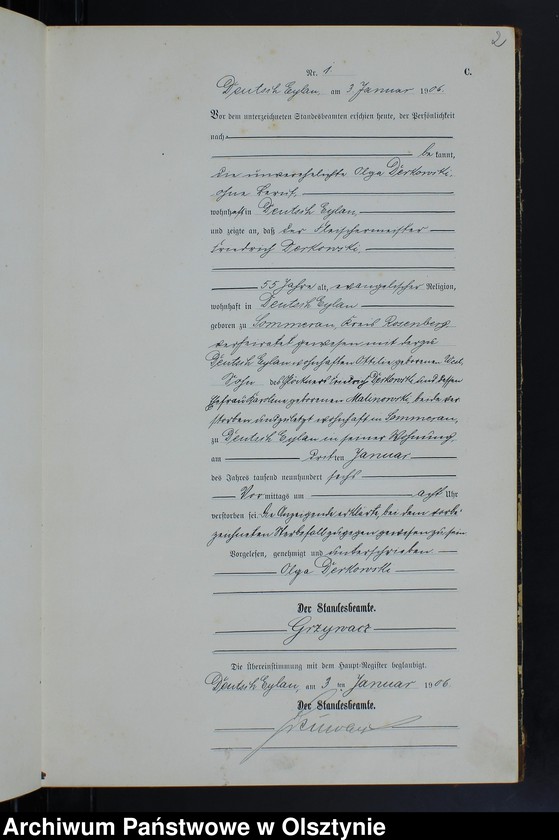 2
Nr. 1
C.
Deutsch Eylau, am 3 Januar 1906.
Vor dem unterzeichneten Standesbeamten erschien heute, der Persönlichkeit
nach
be kannt,
die unverehelichte Olga Derkowski,
ohne Beruf,
wohnhaft in Deutsch Eylau
und zeigte an, daß der Fleischermeister
Friedrich Derkowski,
55 Jahre alt, evangelischer Religion,
wohnhaft in Deutsch Eylau
geboren zu Sommerau, Kreis Rosenberg
verheiratet gewesen mit der zu
Deutsch Eylau wohnhaften Ottilie geborenen
Sohn des Friedrich Derkowski und dessen
Ehefrau Karoline geborenen Malinowski, beide ver-
storben und zuletzt wohnhaft in Sommerau,
zu Deutsch Eylau in seiner Wohnung
am dritten Januar
des Jahres tausend neunhundert sechs
Vor mittags um acht Uhr
verstorben sei. Die Anzeigende erklärte, bei dem vorbe-
zeichneten Sterbefall zugegen gewesen zu sein
Vorgelesen, genehmigt und unterschrieben
Olga Derkowski
Der Standesbeamte.
Grzywacz
Die Übereinstimmung mit dem Haupt-Register beglaubigt.
Deutsch Eylau, am 3 ten Januar 1906
Der Standesbeamte.
Archiwum Państwowe w Olsztynie